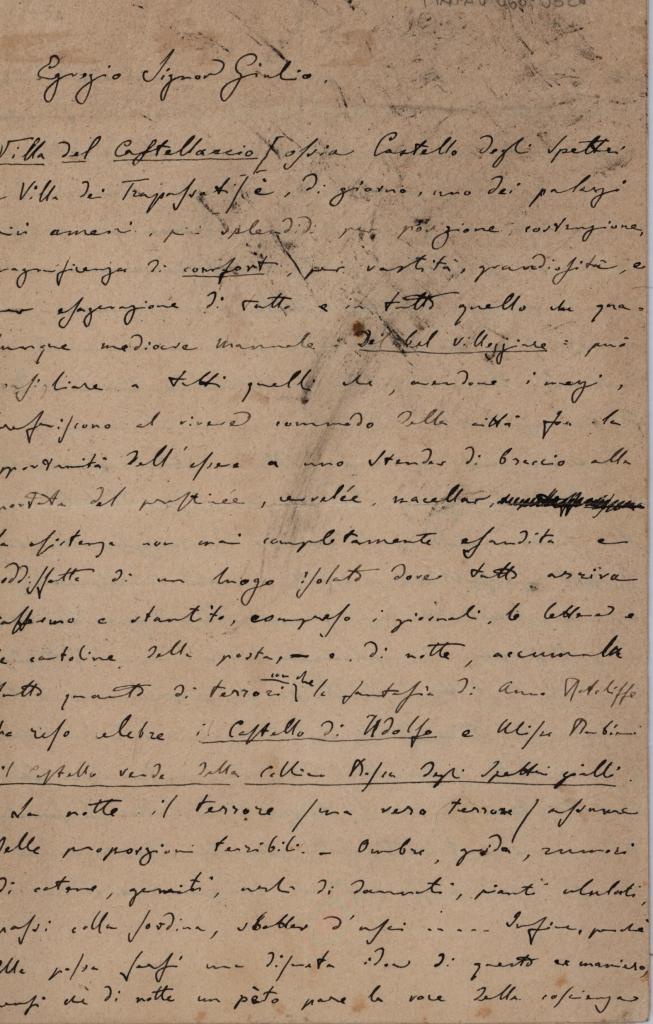 Egregio Signor Giulio.
Villa del Castellaccio (ossia Castello degli Spettri
Villa dei Trapassati) è, di giorno, uno dei palazzi
ameni, più splendidi per posizione, costruzione,
magnificenza di comfort, per vastità, grandiosità, e
esagerazione di tutto e in tutto quello che qua=
lunque mediocre manuale del bel villeggiare = può
consigliare a tutti quelli che, avendone i mezzi,
preferiscono al vivere commodo della città fra la
opportunità dell'essere a uno stender di braccio alla
portata del , macellar,
la esistenza non mai completamente esaudita e
soddisfatta di un luogo isolato dove tutto arriva
e stantito, compreso i giornali, le lettere e
le cartoline della posta, — e di notte, accumula
tutto quanto di terrori con che la fantasia di Anna Ratcliffe
ha reso celebre il Castello di Udolfo e
il castello verde della Collina Rossa degli Spettri gialli.
La notte il terrore (ma vero terrore) assume
delle proporzioni terribili. — Ombre, grida, rumori
di catene, gemiti, urli di dannati, pianti ululati,
passi colla sordina, sbatter d'usci ..... Infine, perchè
ella possa farsi una di questo maniero,
di notte un pèto pare la voce della coscienza